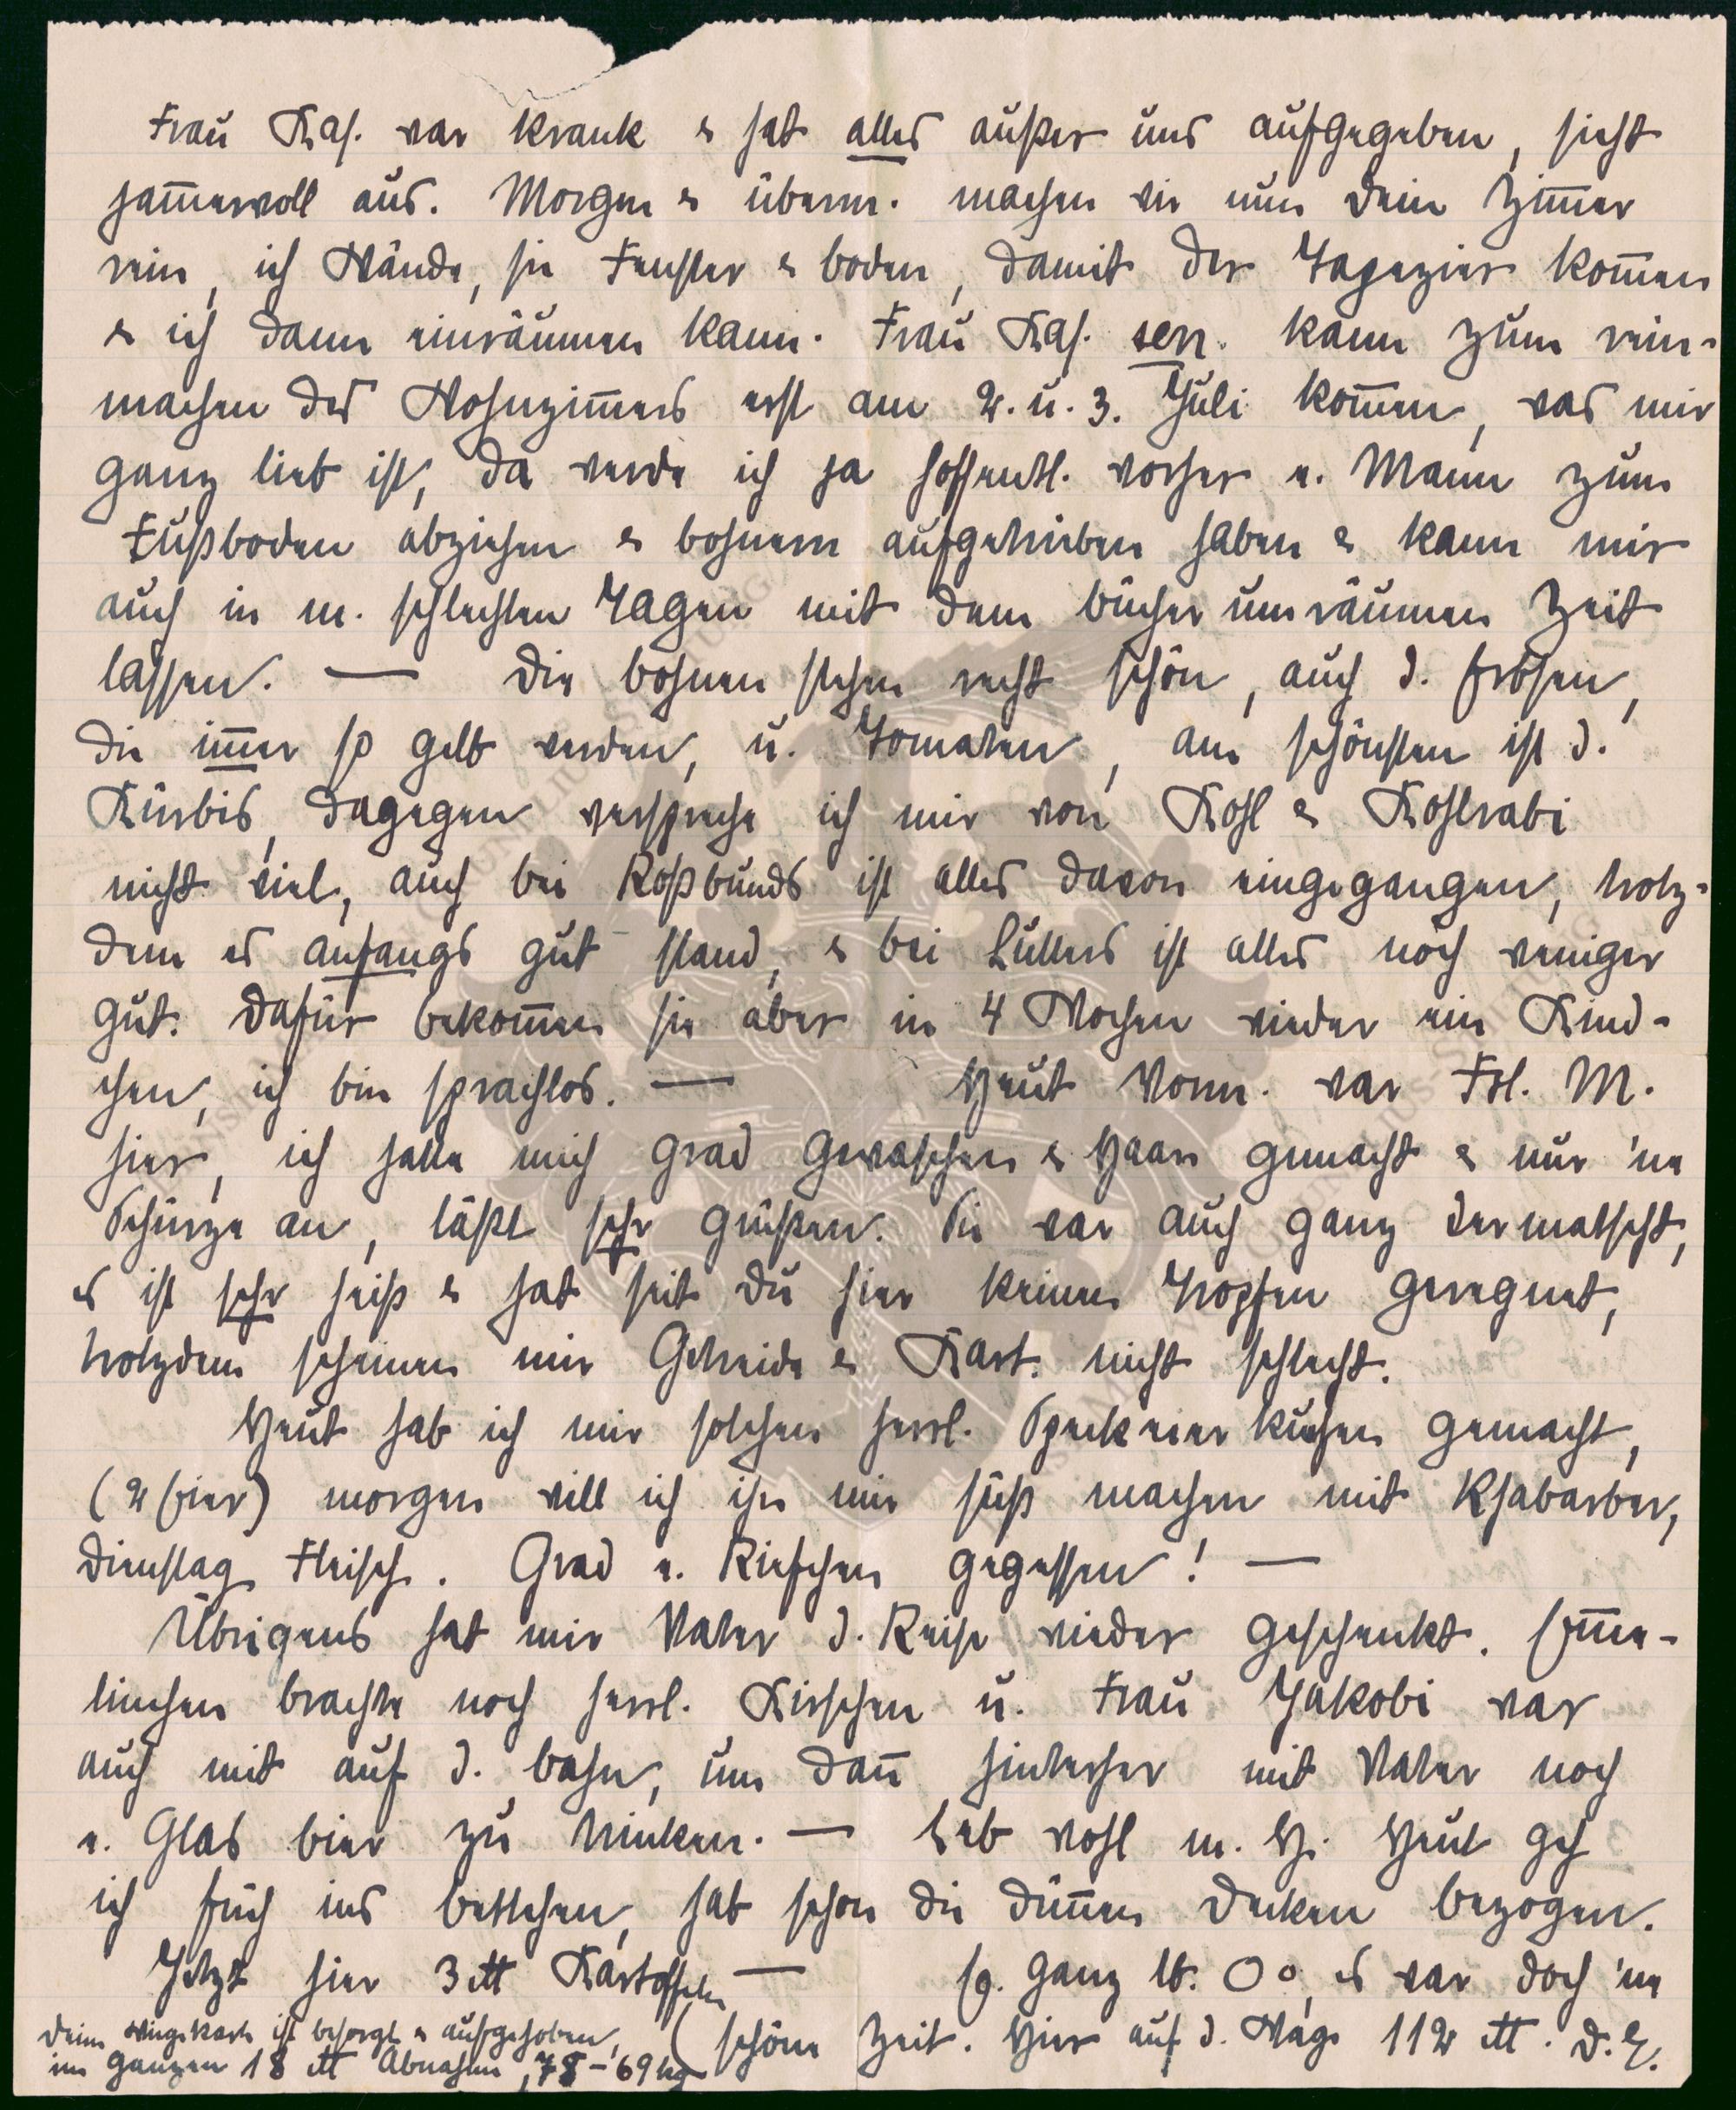 Frau Kas. war krank & hat alles außer uns aufgegeben, sieht
jam̄ervoll aus. Morgen & überm. machen wir nun Dein Zim̄er
rein, ich Wände, sie Fenster & Boden, damit der Tapezier kom̄en
& ich dann einräumen kann. Frau Kas. sen. kann zum rein-
machen des Wohnzim̄ers erst am 2. u. 3. Juli kom̄en, was mir
ganz lieb ist, da werde ich ja hoffentl. vorher e. Mann zum
Fußboden abziehen & bohnern aufgetrieben haben & kann mir
auch in m. schlechten Tagen mit dem Bücher umräumen Zeit
lassen. — Die Bohnen stehen recht schön, auch d. Erbsen,
die im̄er so gelb werden, u. Tomaten, am schönsten ist d.
Kürbis, dagegen verspreche ich mir von Kohl & Kohlrabi
nicht viel, auch bei Roßbunds ist alles davon eingegangen, trotz-
dem es anfangs gut stand, & bei Lüllers ist alles noch weniger
gut. Dafür bekom̄en sie aber in 4 Wochen wieder ein Kind-
chen, ich bin sprachlos. — Heut Vorm. war Frl. M.
hier, ich hatte mich grad gewaschen & Haare gemacht & nur 'ne
Schürze an, läßt sehr grüßen. Sie war auch ganz vermatscht,
es ist sehr heiß & hat seit Du hier keinen Tropfen geregnet,
trotzdem scheinen mir Getreide & Kart. nicht schlecht.
Heut hab ich mir solchen herrl. Speckeierkuchen gemacht,
(2 Eier) morgen will ich ihn mir süß machen mit Rhabarber,
Dienstag Fleisch. Grad e. Riefchen gegessen! —
Übrigens hat mir Vater d. Reise wieder geschenkt. Em̄e-
linchen brachte noch herrl. Kirschen u. Frau Jakobi war
auch mit auf d. Bahn, um dan̄ hinterher mit Vater noch
e. Glas Bier zu trinken. — Leb wohl m. H. Heut geh
ich früh ins Bettchen, hab schon die dün̄en Decken bezogen.
Jetzt hier 3 ℔ Kartoffeln — so. ganz lb. Oo, es war doch 'ne
(schöne Zeit. Hier auf d. Wage 112 ℔. D. E.
Deine Wiegekarte ist besorgt & aufgehoben,
im Ganzen 18 ℔ Abnahme, 78-69 kg